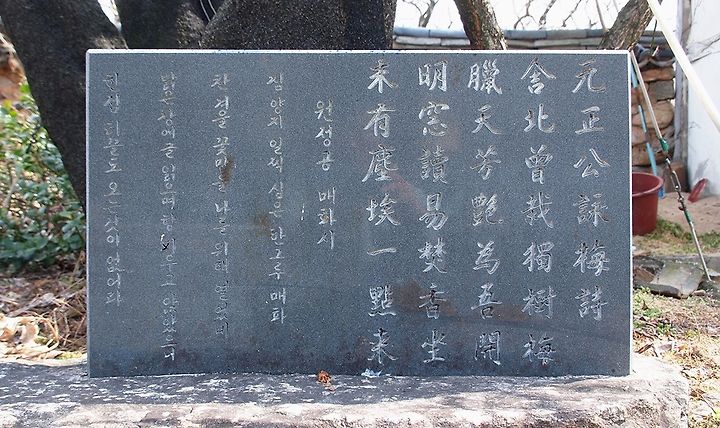 元正公詠梅詩
舍北曾栽獨樹梅
臘天芳艶為吾開
明窓讀易焚香坐
未有塵埃一點来
원정공 매화시
집 양지 일찍 심은 한 그루 매화
찬 겨울 꽃망울 나를 위해 열었네
밝은 창에 글 읽으며 향 피우고 앉았으니
한점 티끌도 오는 것이 없어라